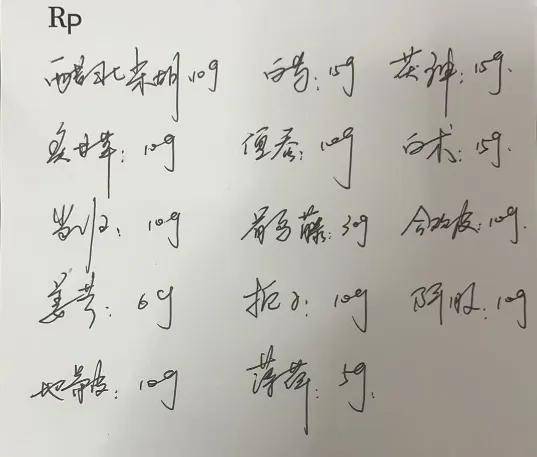 Rp
醋北柴胡10g 白芍:15g 茯神:15g.
炙甘草:10g 恒香:10g 白术:15g.
当归:10g 首乌藤:30g 合欢皮:10g.
姜芩:6g 枳子:10g 阿胶:10g
地骨皮:10g 薄荷:5g.